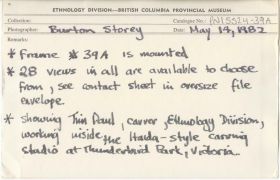 ETHNOLOGY DIVISION—BRITISH COLUMBIA PROVINCIAL MUSEUM
Collection: Catalogue No.: PN15524-39A
Photographer: Burton Storey Date: May 14, 1982
Remarks:
* Frame #39A is mounted
* 28 views in all are available to choose
from, see contact sheet in oversize file
envelope.
* showing Tim Paul, carver, Ethnology Division,
working inside the Haida-style carving
studio at Thunderbird Park, Victoria.